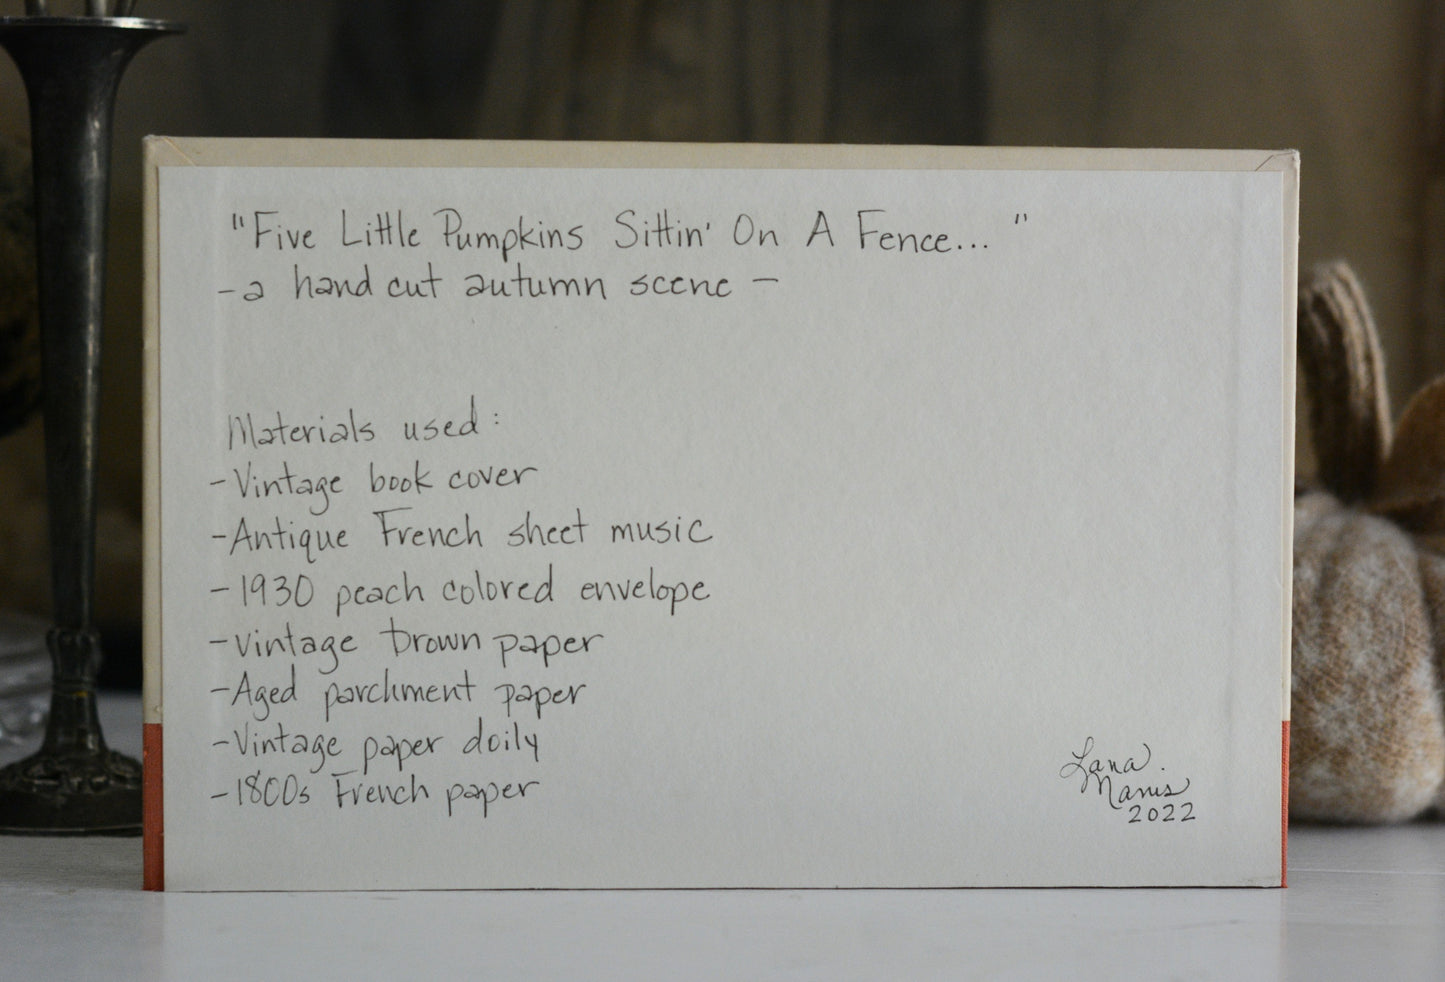 "Five Little Pumpkins Sittin' On A Fence... "
- a hand cut autumn scene -
Materials used:
- Vintage book cover
- Antique French sheet music
- 1930 peach colored envelope
- Vintage brown paper
- Aged parchment paper
- Vintage paper doily
- 1800s French paper
Lana
2022